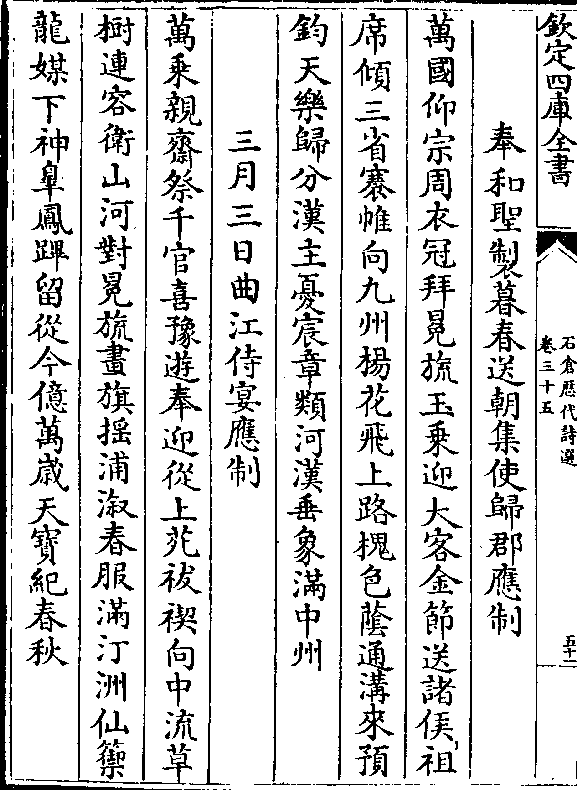 欽定四庫全書
石倉歷代詩選
卷三十五
五十二
奉和聖製暮春送朝集使歸郡應制
萬國仰宗周衣冠拜冕旒玉乗迎大客金節送諸侯祖
席傾三省褰帷向九州楊花飛上路槐色䕃通溝來預
鈞天樂歸分漢主憂宸章類河漢垂象滿中州
三月三日曲江侍宴應制
萬乗親齋祭千官喜豫遊奉迎從上苑祓禊向中流草
樹連容衛山河對冕旒畫旗揺浦溆春服滿汀洲仙籞
龍媒下神臯鳳蹕留從今億萬歲天寶紀春秋